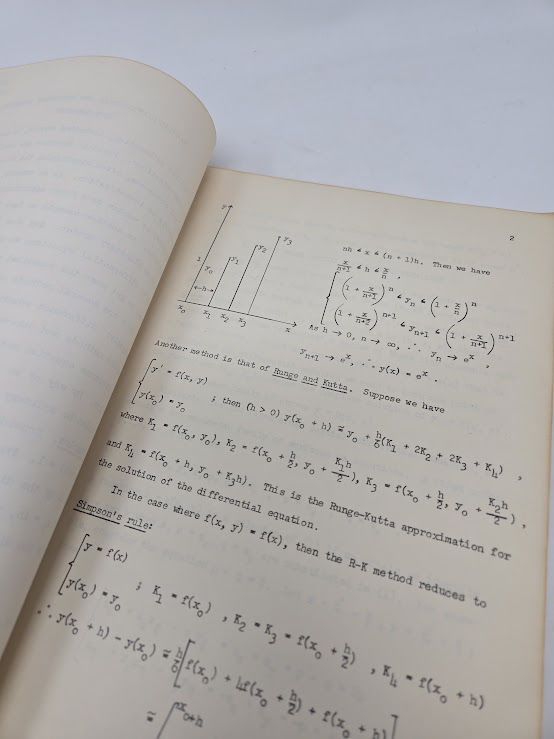 2
nh ≤ x ≤ (n + 1)h. Then we have
x/(n+1) ≤ h ≤ x/n .
(1 + x/(n+1))^n ≤ y_n ≤ (1 + x/n)^n
(1 + x/(n+2))^(n+1) ≤ y_(n+1) ≤ (1 + x/(n+1))^(n+1)
As h → 0, n → ∞, ∴ y_n → e^x ,
y_(n+1) → e^x, ∴ y(x) = e^x .
y
1
y_0
y_1
y_2
y_3
←h→
x_0 x_1 x_2 x_3
x
Another method is that of Runge and Kutta. Suppose we have
y' = f(x, y)
y(x_0) = y_0 ; then (h > 0) y(x_0 + h) ≅ y_0 + h/6(K_1 + 2K_2 + 2K_3 + K_4) ,
where K_1 = f(x_0, y_0), K_2 = f(x_0 + h/2, y_0 + K_1h/2), K_3 = f(x_0 + h/2, y_0 + K_2h/2) ,
and K_4 = f(x_0 + h, y_0 + K_3h). This is the Runge-Kutta approximation for
the solution of the differential equation.
In the case where f(x, y) = f(x), then the R-K method reduces to
Simpson's rule:
y = f(x)
y(x_0) = y_0 ; K_1 = f(x_0) , K_2 = K_3 = f(x_0 + h/2) , K_4 = f(x_0 + h)
∴ y(x_0 + h) - y(x_0) ≅ h/6[f(x_0) + 4f(x_0 + h/2) + f(x_0 + h)]
≅ ∫ x_0+h